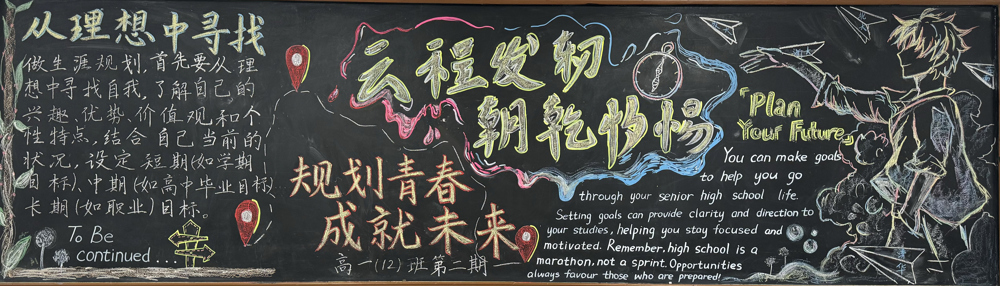 从理想中寻找
做生涯规划,首先要从理
想中寻找自我,了解自己的
兴趣、优势、价值观和个
性特点,结合自己当前的
状况,设定短期(如学期
目标)、中期(如高中毕业目标)
长期(如职业)目标。
To Be
continued...
云程发轫
朝乾夕惕
规划青春
成就未来
高一(12)班第二期
「Plan
Your Future」
You can make goals
to help you go
through your senior high school life.
Setting goals can provide clarity and direction to
your studies, helping you stay focused and
motivated. Remember, high school is a
marathon, not a sprint. Opportunities
always favour those who are prepared!